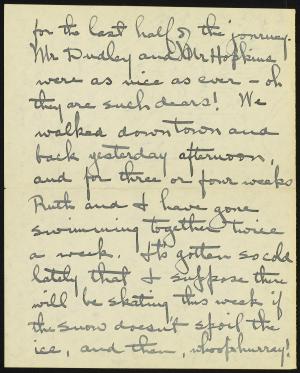 for the last half of the journey.
Mr Dudley and Mr Hopkins
were as nice as ever - oh
they are such dears! We
walked down town and
back yesterday afternoon,
and for three or four weeks
Ruth and I have gone
swimming together twice
a week. It's gotten so cold
lately that I suppose there
will be skating this week if
the snow doesn't spoil the
ice, and then, whoop hurray!